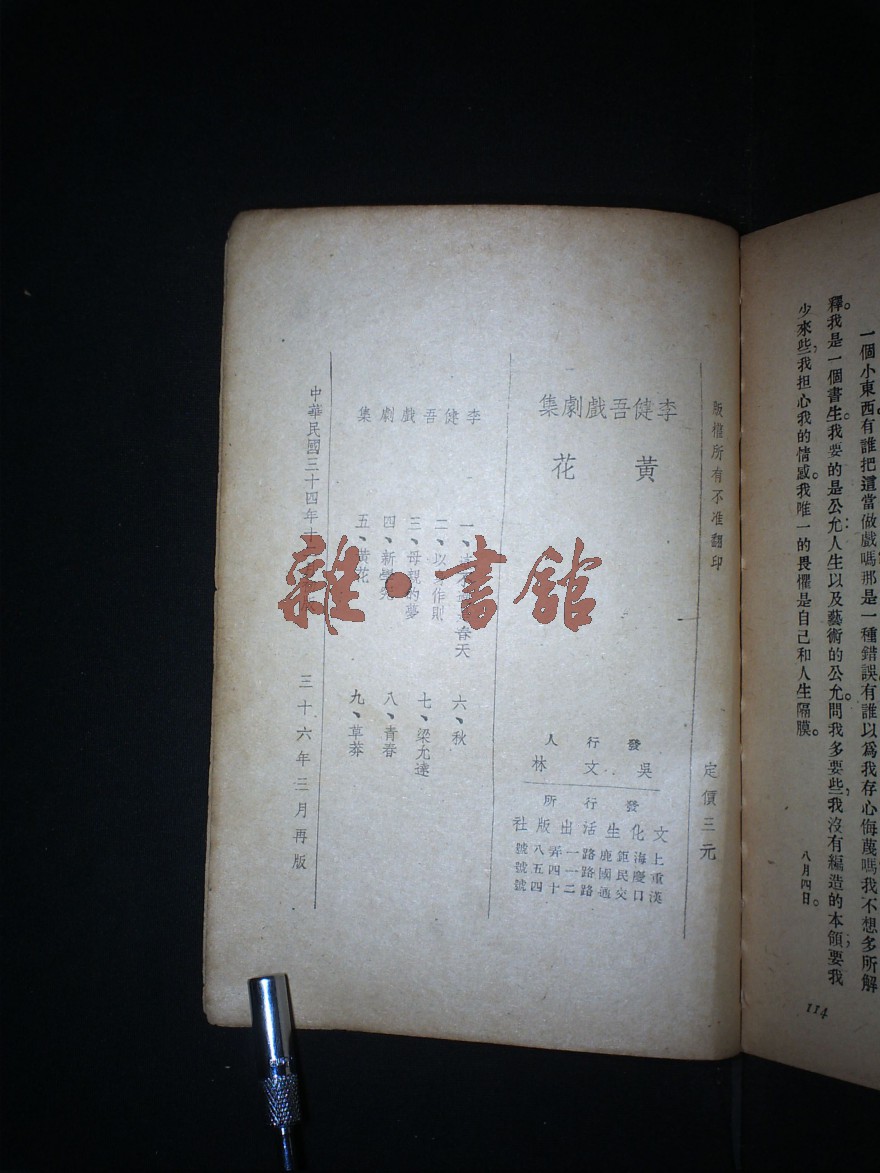 一個小東西。有誰把這當做戲嗎？那是一種錯誤有誰以為我存心侮蔑嗎？我不想多所解
釋。我是一個書生。我要的是公允：人生以及藝術的公允。問我多要些，我沒有編造的本領；要我
少來些，我担心我的情感。我唯一的畏懼是自己和人生隔膜。
八月四日。
114
版權所有不准翻印
定價三元
李健吾戲劇集
黃花
發行人
吳文林
發行所
文化生活出版社
上海鉅鹿路一弄八號
重慶民國路一四五號
漢口交通路二十四號
李健吾戲劇集
一、
春天
二、以
作則
三、母親的夢
四、新學究
五、黃花
六、秋
七、梁允達
八、青春
九、草莽
中華民國三十四年十
三十六年三月再版
雜·書館